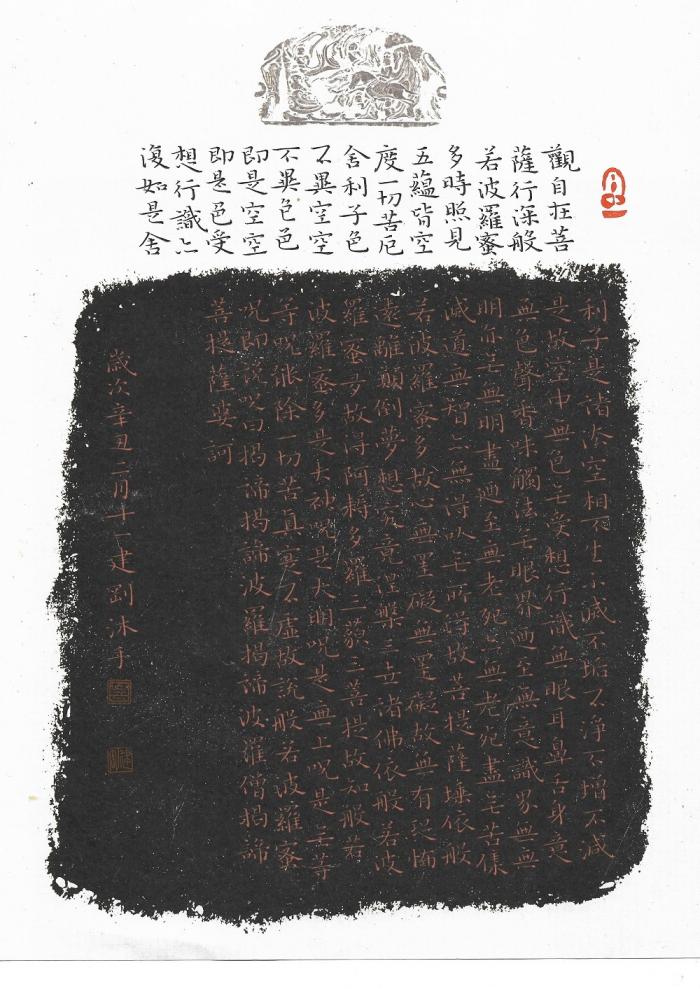 觀自在菩
薩行深般
若波羅蜜
多時照見
五蘊皆空
度一切苦厄
舍利子色
不異空空
不異色色
即是空空
即是色受
想行識亦
復如是舍
利子是諸法空相不生不滅不垢不淨不增不減
是故空中無色无受想行識無眼耳鼻舌身意
無色聲香味觸法无眼界廼至無意識界無無
明亦无無明盡廼至無老死亦無老死盡无苦集
滅道無智亦無得以无所得故菩提薩埵依般
若波羅蜜多故心無罣礙無罣礙故無有恐怖
遠離顛倒夢想究竟涅槃三世諸佛依般若波
羅蜜多故得阿耨多羅三藐三菩提故知般若
波羅蜜多是大神咒是大明咒是無上咒是无等
等咒能除一切苦真實不虛故說般若波羅蜜
咒即說咒曰揭諦揭諦波羅揭諦波羅僧揭諦
菩提薩婆訶
歲次辛丑二月十一建劉沐手